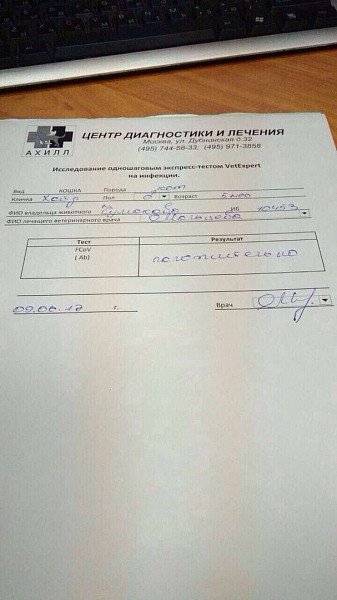 АХИЛЛ
ЦЕНТР ДИАГНОСТИКИ И ЛЕЧЕНИЯ
Москва, ул. Дубнинская 0.32
(495) 744-58-33, (495) 971-3858
Исследование одношаговым экспресс-тестом VetExpert
на инфекции.
Вид КОШКА Порода
Кличка Пол Возраст
ФИО владельца животного ИБ
ФИО лечащего ветеринарного врача
Тест Результат
FCoV
( Ab) положительно
09.06.17 г. Врач